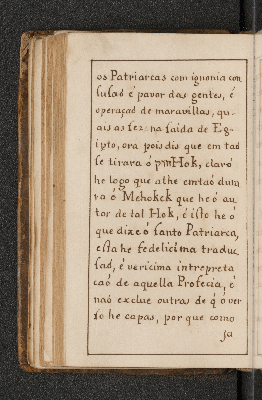 os Patriarcas com ignonia con
fusaõ é pavor das gentes, é
operaçaõ de maravillas, qu-
ais as fez na saida de Eg-
ipto, ora pois dis que em taõ
se tirara ó חקק Hok, claro
he logo que athe emtaõ dura
ra ó Mehokek que he ó au-
tor de tal Hok, é isto he ó
que dize ó santo Patriarca,
esta he fedelicima traduc
saõ, é vericima intrepreta
caõ de aquella Profecia, é
naõ exclue outras de q̃ ó ver
so he capas, por que como
ja